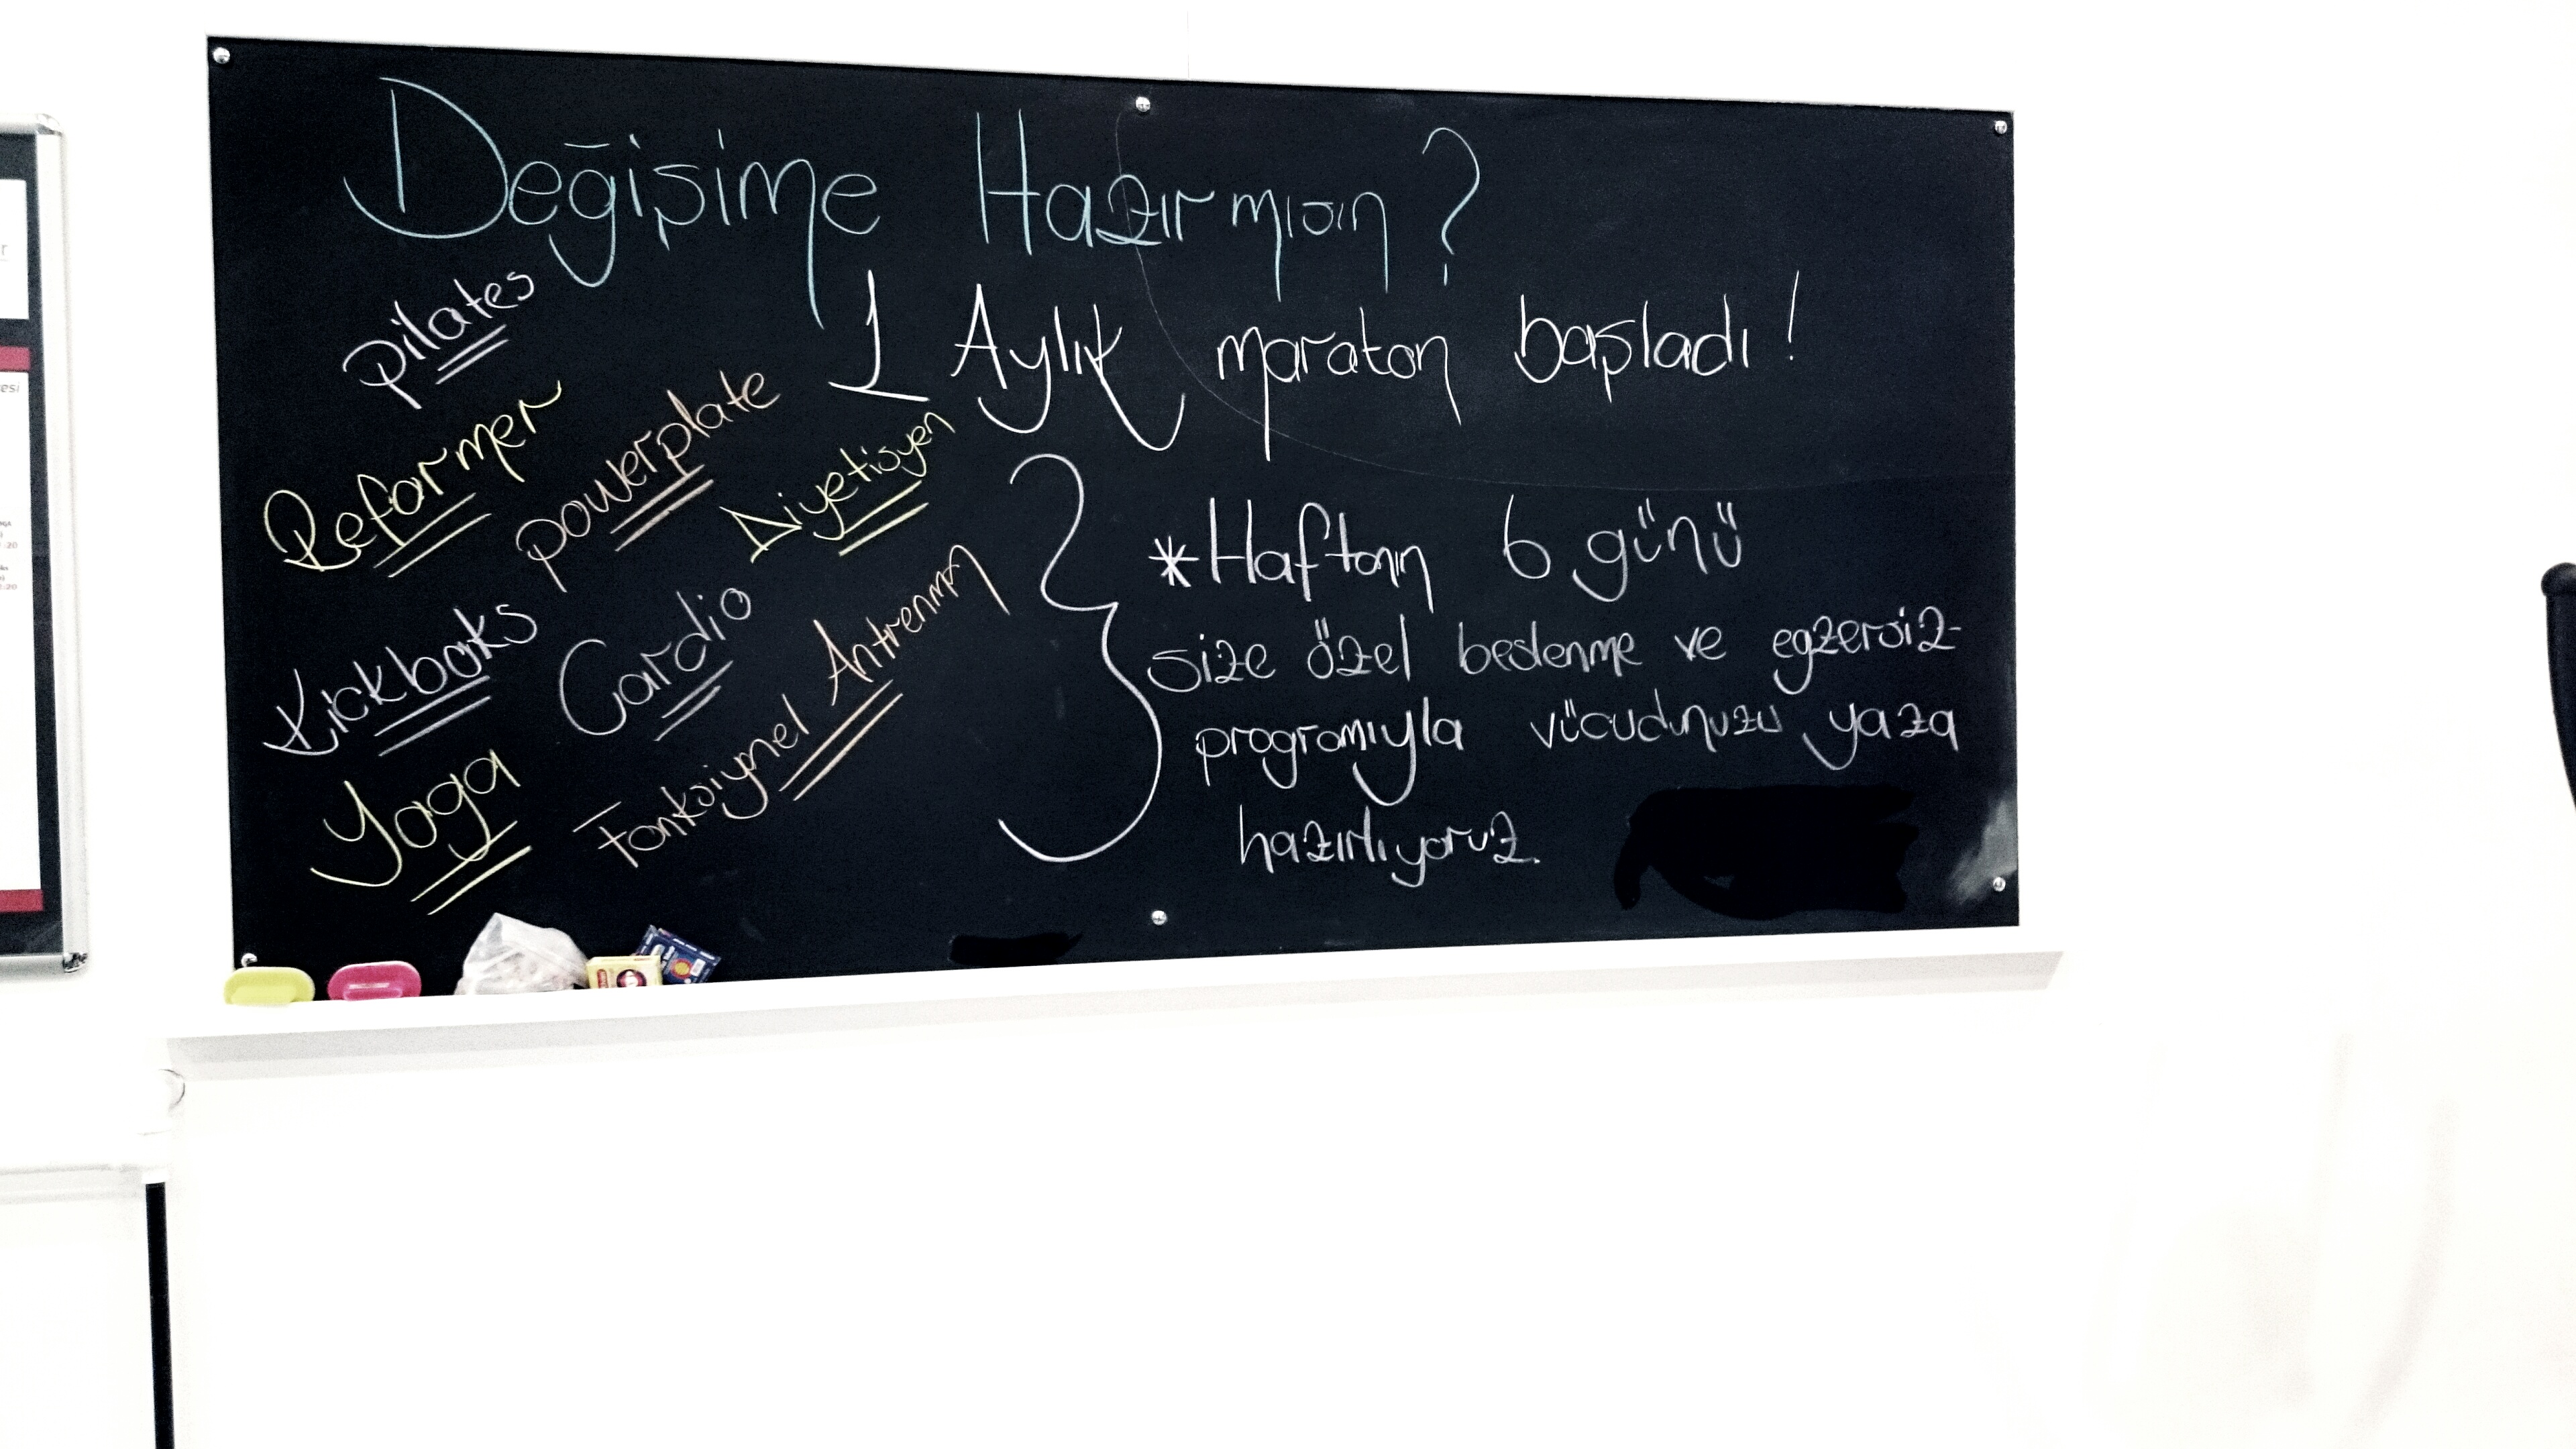 Değişime Hazırmısın ?
1 Aylık maraton başladı !
pilates
Reformer
powerplate
Diyetisyen
Kickboks
Cardio
Fonksiyonel Antrenman
Yoga
*Haftanın 6 günü
size özel beslenme ve egzersiz
programıyla vücudunuzu yaza
hazırlıyoruz.